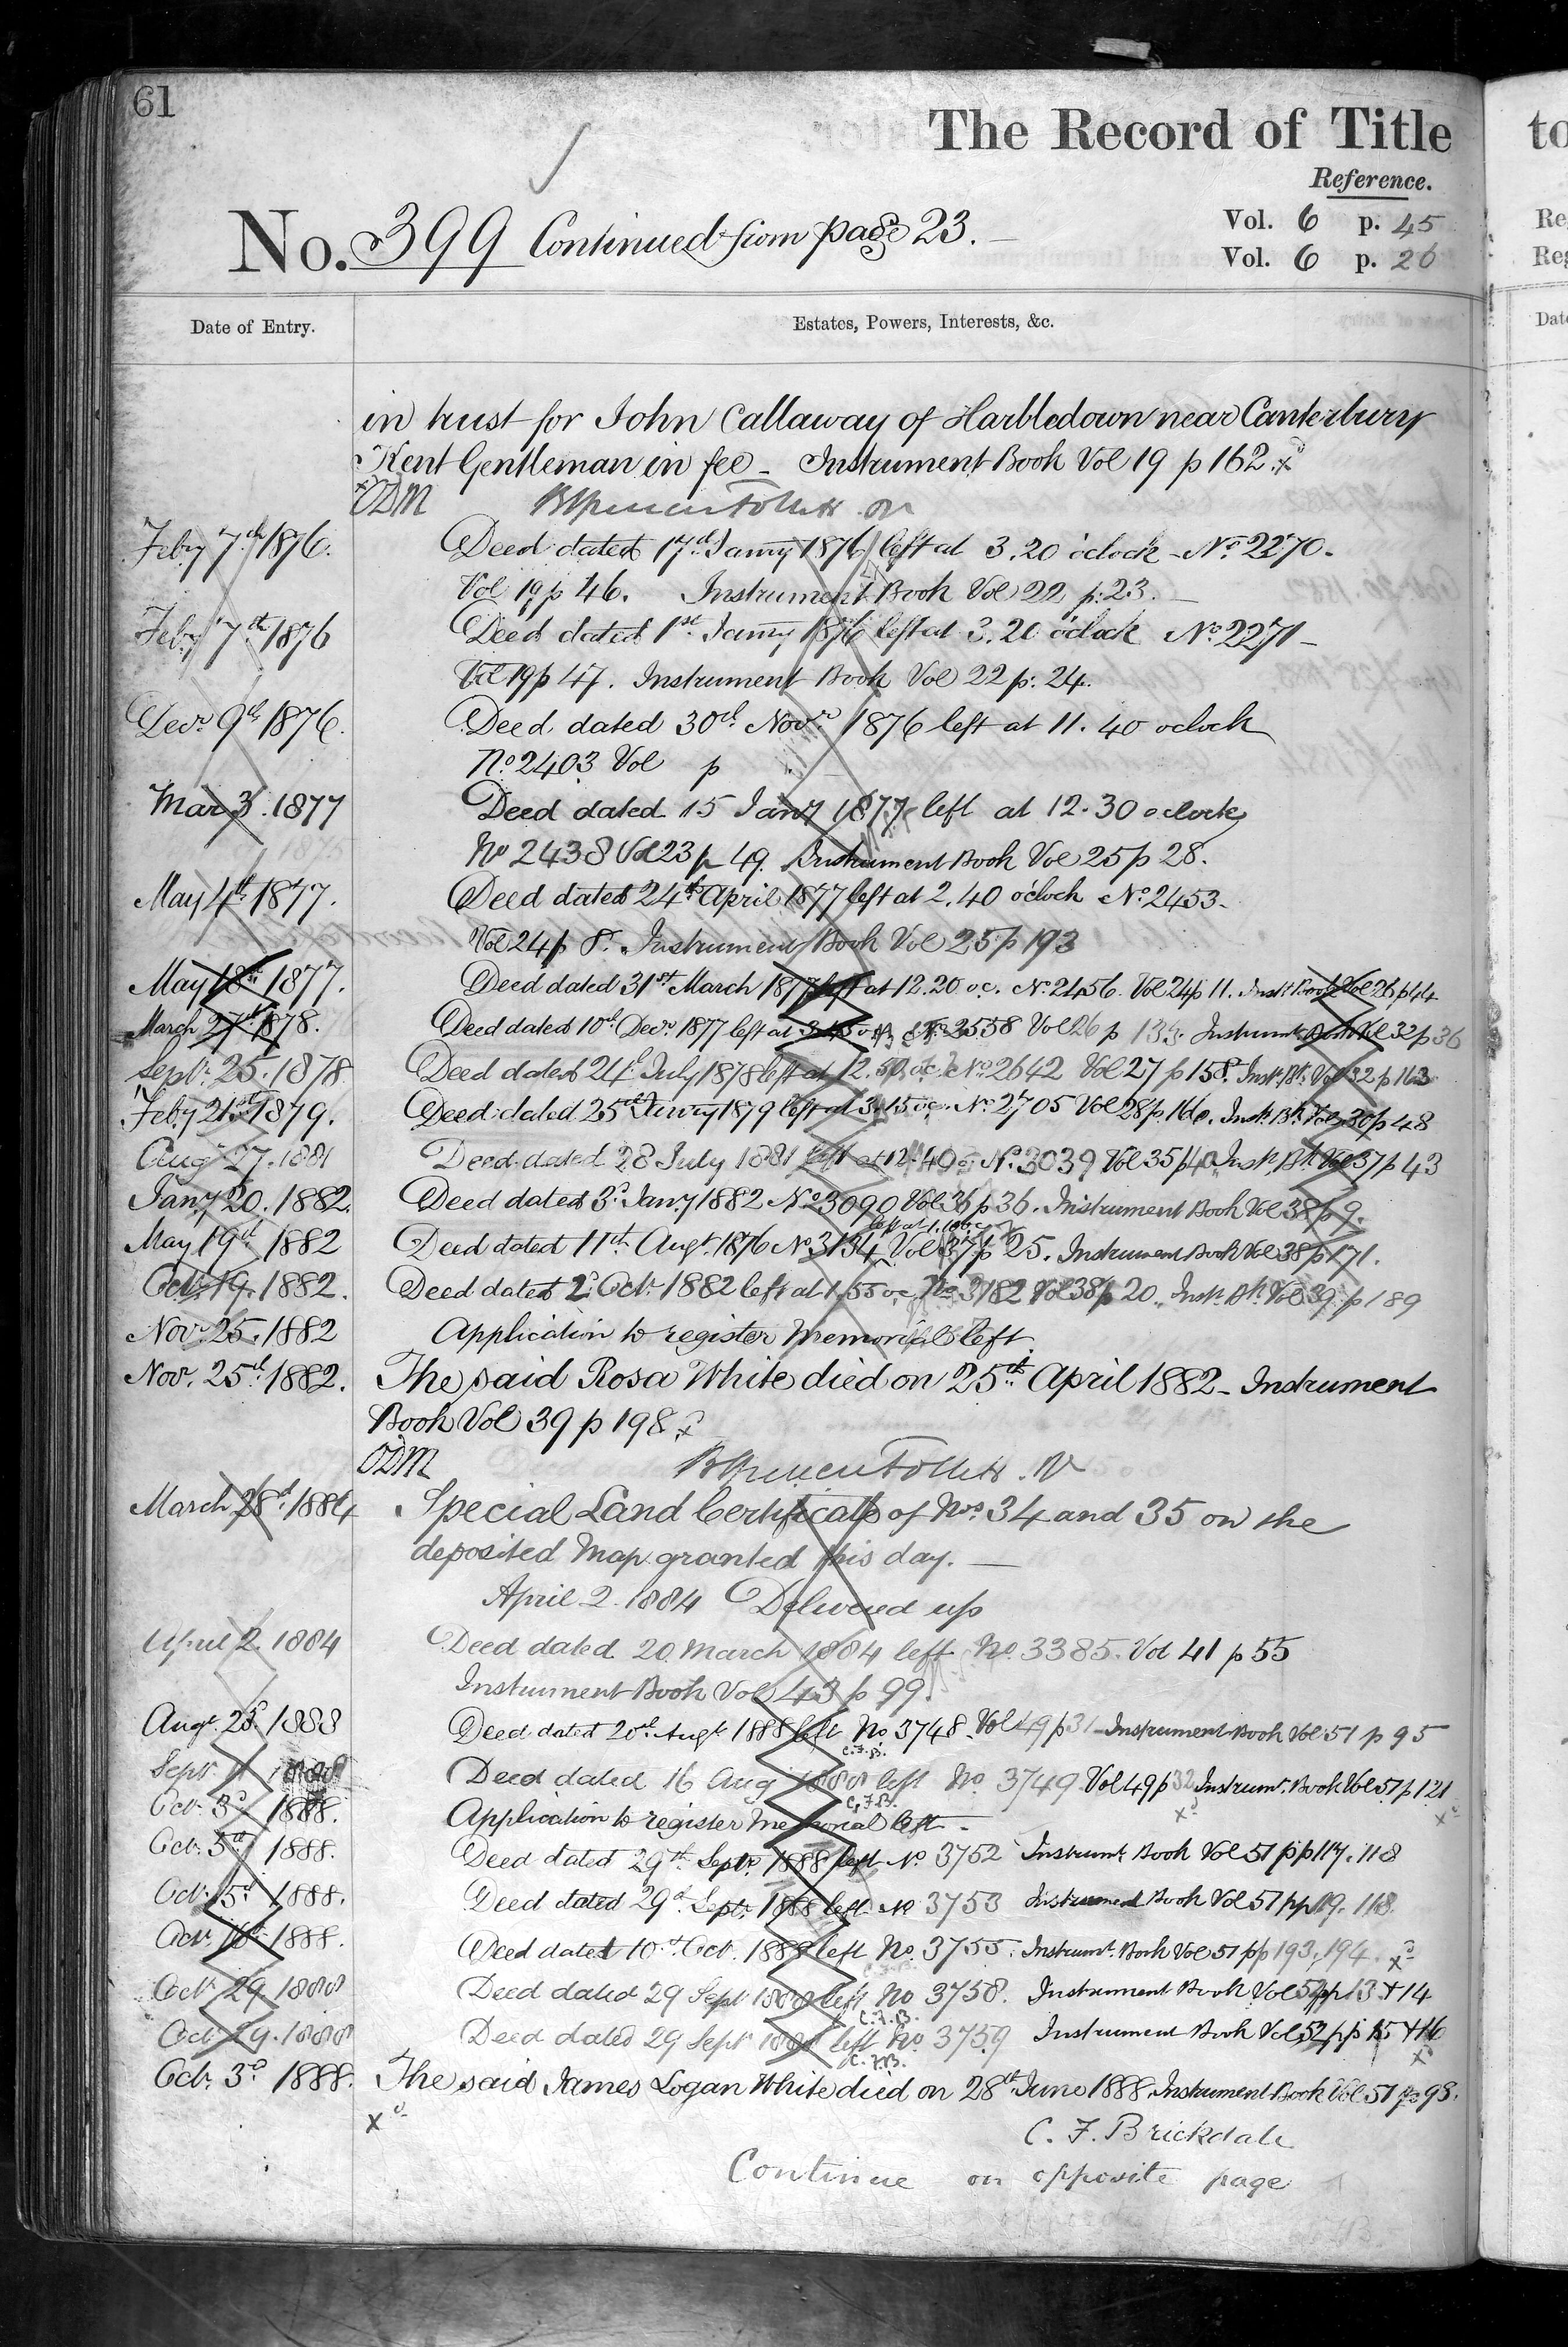 61
The Record of Title
Reference.
No. 399 Continued from page 23. —
Vol. 6 p. 45
Vol. 6 p. 26
Date of Entry.
Estates, Powers, Interests, &c.
in trust for John Callaway of Harbledown near Canterbury
Kent Gentleman in fee – Instrument Book Vol 19 p 162.
ODM
Feby 7th 1876. Deed dated 17th Jany 1876 left at 3.20 oclock – No. 2270.
Vol 19 p 46. Instrument Book Vol 22 p: 23. —
Feby 7th 1876 Deed dated 1st Jany 1876 left at 3.20 oclock No. 2271 –
Vol 19 p 47. Instrument Book Vol 22 p: 24.
Decr 9th 1876. Deed dated 30th Novr 1876 left at 11.40 oclock
No. 2403 Vol p
Mar 3. 1877 Deed dated 15 Jany 1877 left at 12.30 oclock
No 2438 Vol 23 p 49. Instrument Book Vol 25 p 28.
May 4th 1877. Deed dated 24th April 1877 left at 2.40 oclock No. 2453.
Vol 24 p 8. Instrument Book Vol 25 p 193
May 18th 1877. Deed dated 31st March 1877 left at 12.20 oc. No. 2456. Vol 24 p 11. Instt Book Vol 26 p 44
March 27th 1878. Deed dated 10th Decr 1877 left at 3.15 oc No. 2558 Vol 26 p Instrumt Book Vol 32 p 36
Septr 25. 1878 Deed dated 24th July 1878 left at 12.50 oc. No. 2642 Vol 27 p 158. Instt Bk Vol 32 p 163
Feby 21st 1879. Deed dated 25th Jany 1879 left at 3.15 oc. No. 2705 Vol 28 p. 160. Inst. Bk Vol 30 p 48
Aug 27. 1881 Deed dated 28 July 1881 left at 12.40 No. 3039 Vol 35 p 40 Inst. Bk Vol 37 p 43
Jany 20. 1882. Deed dated 3d Jany 1882 No. 3090 Vol 36 p 36. Instrument Book Vol 38 p 9.
left at 1.10 oc
May 19th 1882 Deed dated 11th Augt 1876 No. 3134 Vol 37 p 25. Instrument Book Vol 38 p 171.
Oct. 19. 1882. Deed dated 2d Octr 1882 left at 1.55 oc No. 3182 Vol 38 p 20. Inst. Bk. Vol 39 p 189
Nov. 25. 1882 Application to register Memorial left.
Nov. 25th 1882. The said Rosa White died on 25th April 1882 – Instrument
Book Vol 39 p 198
ODM
March 28th 1884 Special Land Certificate of Nos. 34 and 35 on the
deposited Map granted this day. —
April 2. 1884 Delivered up
April 2. 1884 Deed dated 20 March 1884 left No. 3385. Vol 41 p 55
Instrument Book Vol 43 p 99.
Augt 25. 1888 Deed dated 20th Augt 1888 left No. 3748. Vol 49 p 31 – Instrument Book Vol 51 p 95
C.F.B.
Sept 11 1888 Deed dated 16 Aug 1888 left No. 3749 Vol 49 p 32 Instrumt. Book Vol 51 p 121
C.F.B.
Oct. 3d 1888. Application to register Memorial left –
Oct. 5th 1888. Deed dated 29th Septr 1888 left No 3752 Instrumt Book Vol 51 pp 117. 118
Oct. 5th 1888. Deed dated 29th Septr 1888 left No 3753 Instrument Book Vol 51 pp 119. 118.
Oct. 16th 1888. Deed dated 10th Oct. 1888 left No. 3755. Instrumt. Book Vol 51 pp 193, 194.
Oct 29 1888 Deed dated 29 Sept 1888 left No 3758. Instrument Book Vol 52 pp 13 + 14
C.F.B.
Oct 29. 1888 Deed dated 29 Sept 1888 left No. 3759 Instrument Book Vol 52 pp 15 + 16
C.F.B.
Oct. 3d 1888. The said James Logan White died on 28th June 1888. Instrument Book Vol 51 p 98.
C. F. Brickdale
Continue on opposite page